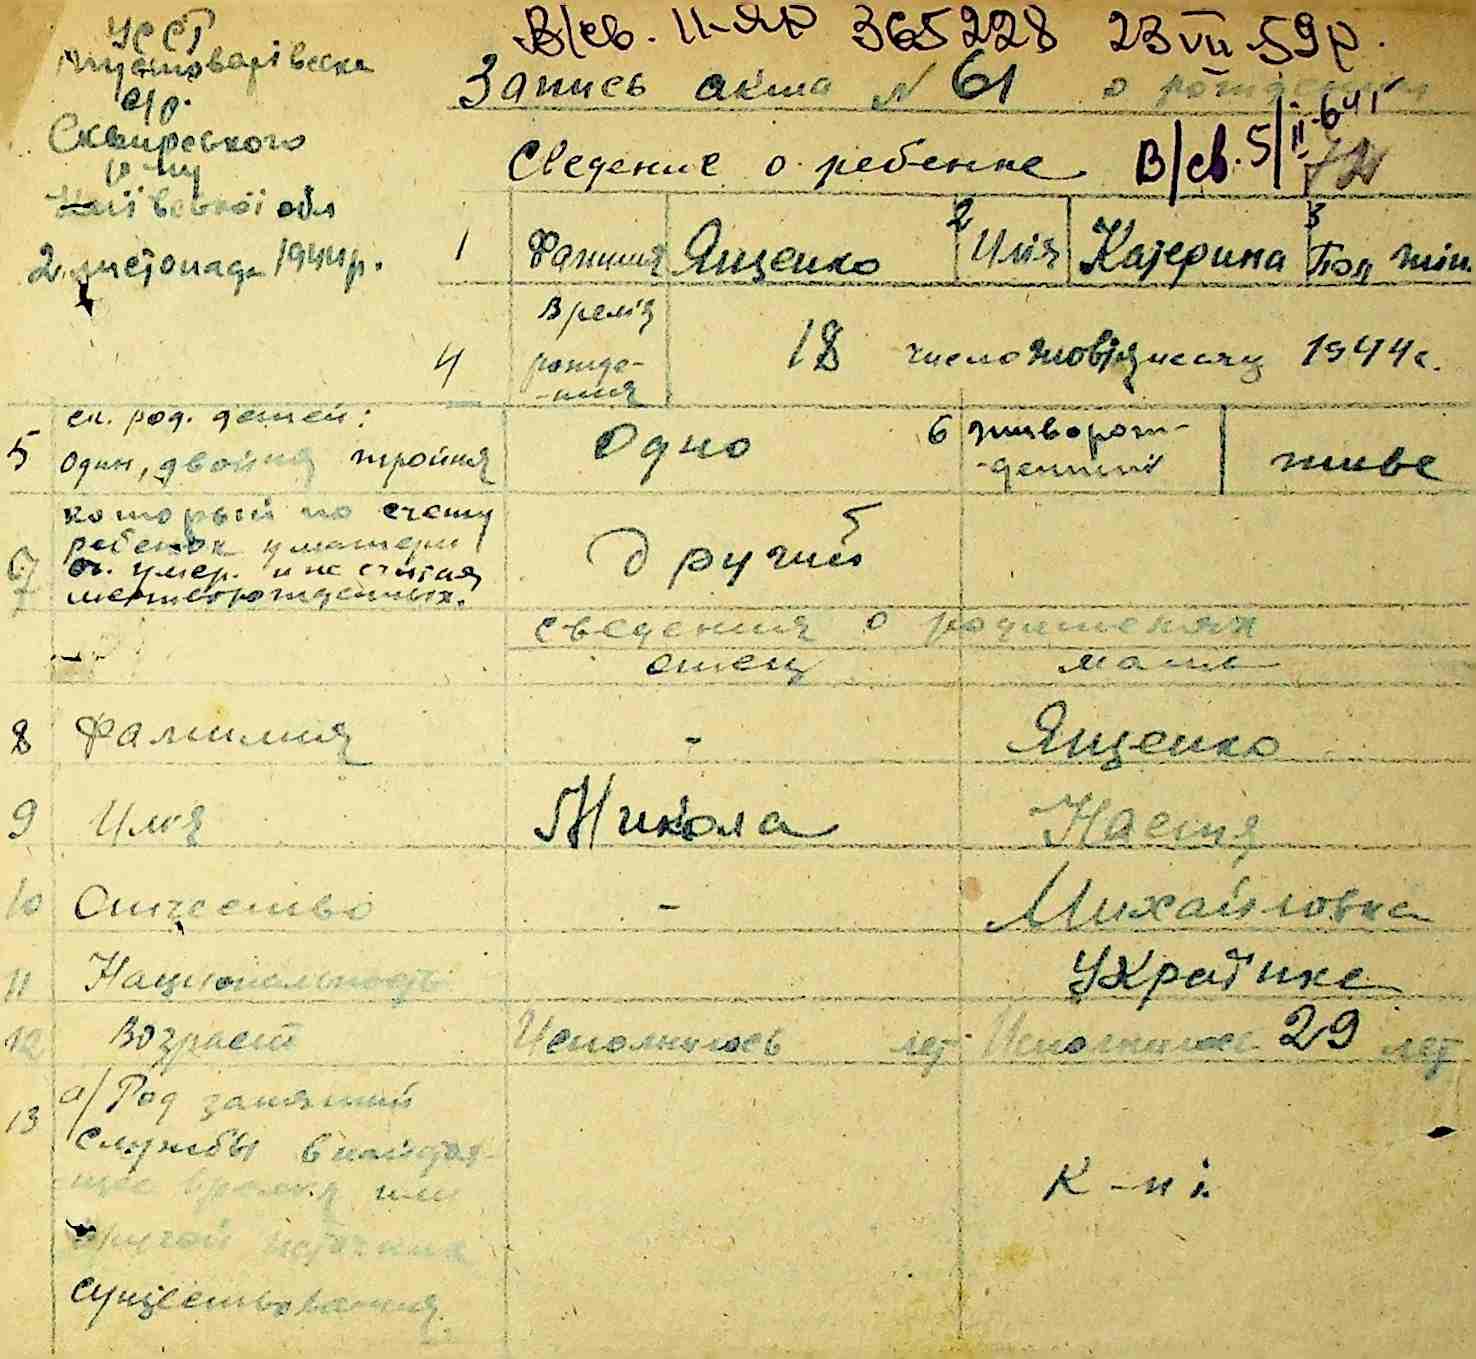 УССР
Пустоварівська
с/р.
Сквирського
р-ну
Київської обл
2 листопада 1944р.
В/св. II-ЯР 365228 23 VII 59р.
Запись акта № 61 о рождении
Сведение о ребенке В/св. 5/II-64
1 Фамилия Ященко 2 Имя Катерина 3 Пол жін.
4 Время рожде-ния 18 число жовтня месяц 1944г.
5 сл. род. детей:
один, двойня тройня Одно 6 живорож-денный живе
7 который по счету
ребенок у матери
вк. умер. и не считая
мертворожденных. Другий
сведения о родителях
отец мать
8 Фамилия - Ященко
9 Имя Микола Настя
10 Отчество - Михайловна
11 Национальность Українка
12 Возраст Исполнилось лет Исполнилось 29 лет
13 а/ Род занятий
службы в настоя-
щее время или
другой источник
существования К-пі.